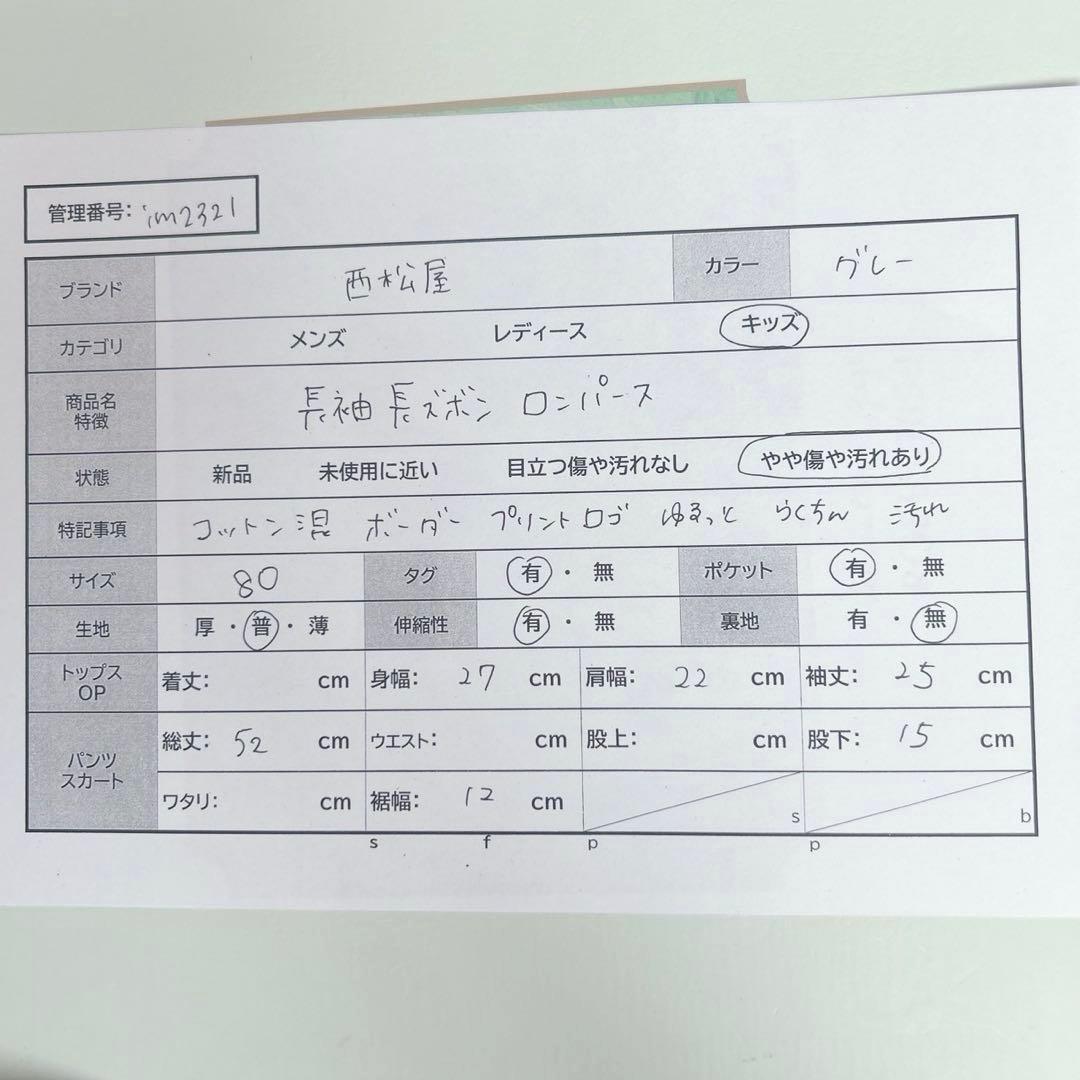 管理番号: im2321
ブランド 西松屋 カラー グレー
カテゴリ メンズ レディース キッズ
商品名 特徴 長袖 長ズボン ロンパース
状態 新品 未使用に近い 目立つ傷や汚れなし やや傷や汚れあり
特記事項 コットン混 ボーダー プリントロゴ ゆるっと らくちん 汚れ
サイズ 80 タグ 有・無 ポケット 有・無
生地 厚・普・薄 伸縮性 有・無 裏地 有・無
トップス OP 着丈: cm 身幅: 27 cm 肩幅: 22 cm 袖丈: 25 cm
パンツ スカート 総丈: 52 cm ウエスト: cm 股上: cm 股下: 15 cm
ワタリ: cm 裾幅: 12 cm s b
s f p p